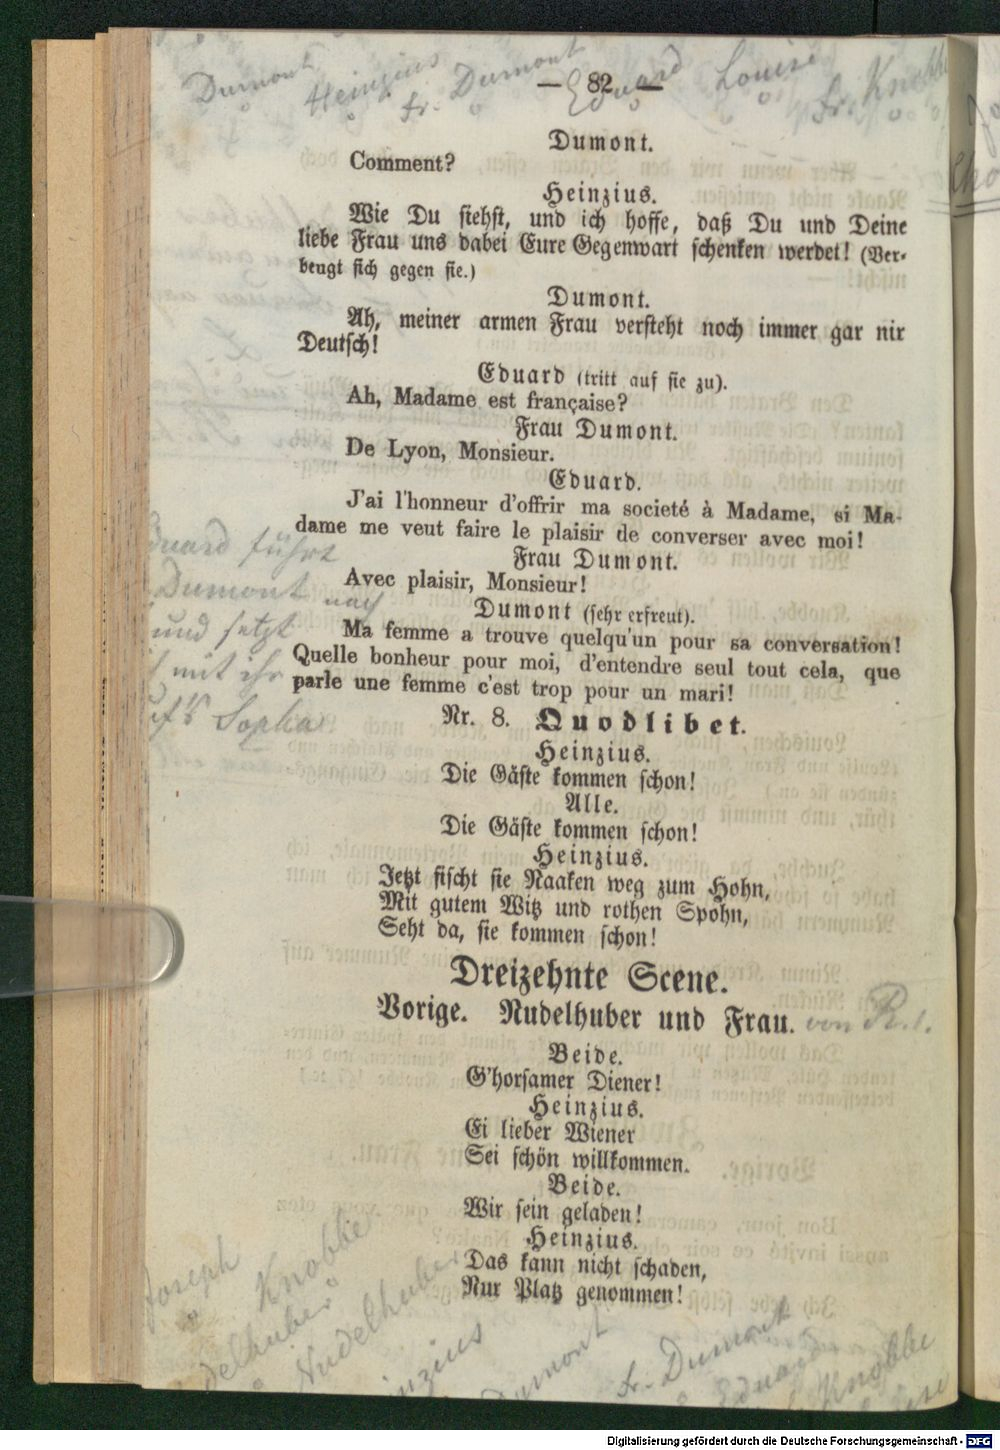 Dumont
Heinzius
fr. Dumont
Eduard
Louise
fr. Knobbe
— 82 —
Dumont.
Comment?
Heinzius.
Wie Du siehst, und ich hoffe, daß Du und Deine
liebe Frau uns dabei Eure Gegenwart schenken werdet! (Ver-
beugt sich gegen sie.)
Dumont.
Ah, meiner armen Frau versteht noch immer gar nir
Deutsch!
Eduard (tritt auf sie zu).
Ah, Madame est française?
Frau Dumont.
De Lyon, Monsieur.
Eduard.
J'ai l'honneur d'offrir ma societé à Madame, si Ma-
dame me veut faire le plaisir de converser avec moi!
Frau Dumont.
Avec plaisir, Monsieur!
Dumont (sehr erfreut).
Ma femme a trouve quelqu'un pour sa conversation!
Quelle bonheur pour moi, d'entendre seul tout cela, que
parle une femme c'est trop pour un mari!
duard führt
Dumont nach
und setzt
mit ihr
auf's Sopha
Nr. 8. Quodlibet.
Heinzius.
Die Gäste kommen schon!
Alle.
Die Gäste kommen schon!
Heinzius.
Jetzt fischt sie Naaken weg zum Hohn,
Mit gutem Witz und rothen Spohn,
Seht da, sie kommen schon!
Dreizehnte Scene.
Vorige. Nudelhuber und Frau. von R.
Beide.
G'horsamer Diener!
Heinzius.
Ei lieber Wiener
Sei schön willkommen.
Beide.
Wir sein geladen!
Heinzius.
Das kann nicht schaden,
Nur Platz genommen!
Joseph
Knobbe
delhuber
Nudelhuber
inzius
Dumont
fr. Dumont
Eduard
Knobbe
Digitalisierung gefördert durch die Deutsche Forschungsgemeinschaft - DFG